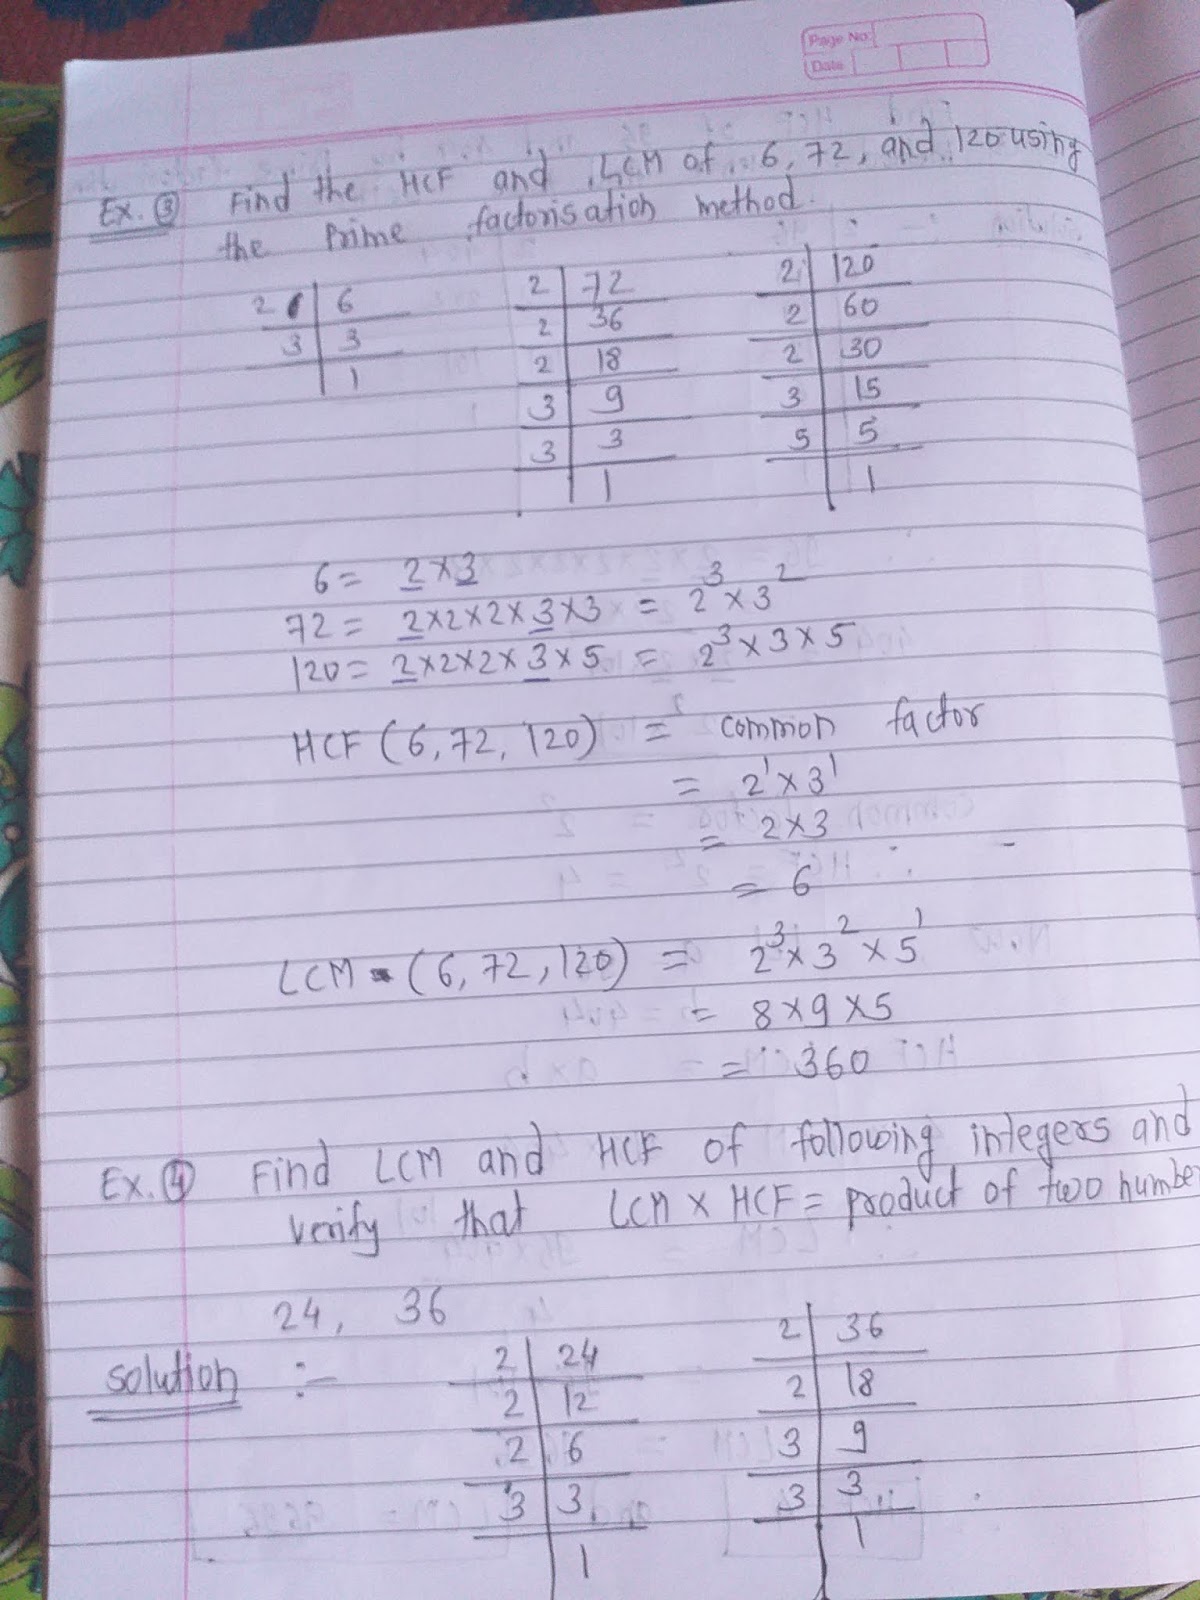 Page No:
Date
Ex. ③ Find the HCF and LCM of 6, 72, and 120 using
the Prime factorisation method.
2 | 6
3 | 3
1
2 | 72
2 | 36
2 | 18
3 | 9
3 | 3
1
2 | 120
2 | 60
2 | 30
3 | 15
5 | 5
1
6 = 2 × 3
72 = 2×2×2×3×3 = 2³ × 3²
120 = 2×2×2×3×5 = 2³ × 3 × 5
HCF (6, 72, 120) = common factor
= 2¹ × 3¹
= 2×3
= 6
LCM = (6, 72, 120) = 2³ × 3² × 5¹
= 8 × 9 × 5
= 360
Ex. ④ Find LCM and HCF of following integers and
verify that LCM × HCF = product of two number
24, 36
solution :-
2 | 24
2 | 12
2 | 6
3 | 3
1
2 | 36
2 | 18
3 | 9
3 | 3
1